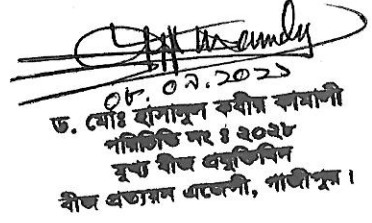 ০৮.০৯.২০২১
ড. মোঃ হাসানুল কবীর কামালী
পরিচিতি নং ঃ ২০২৮
মুখ্য বীজ প্রযুক্তিবিদ
বীজ প্রত্যয়ন এজেন্সী, গাজীপুর।